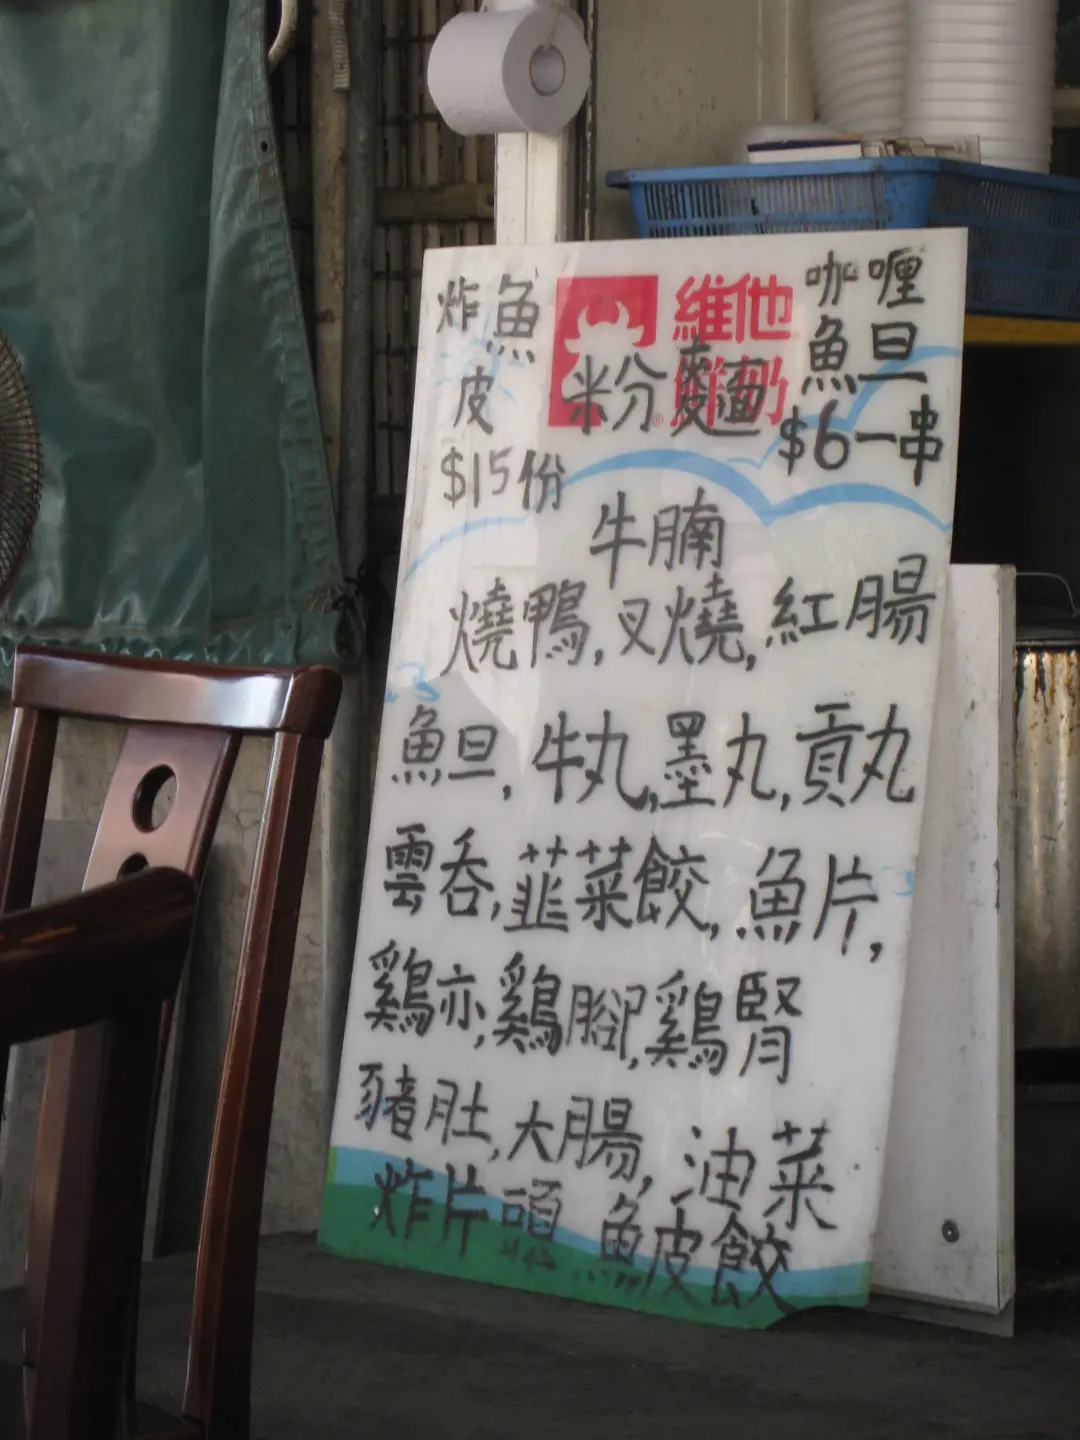 炸魚
皮
$15份
維他
鮮奶
粉麵
咖喱
魚旦
$6一串
牛腩
燒鴨,叉燒,紅腸
魚旦,牛丸,墨丸,貢丸
雲吞,韮菜餃,魚片,
鷄亦,鷄腳,鷄腎
豬肚,大腸,油菜
炸片頭 魚皮餃